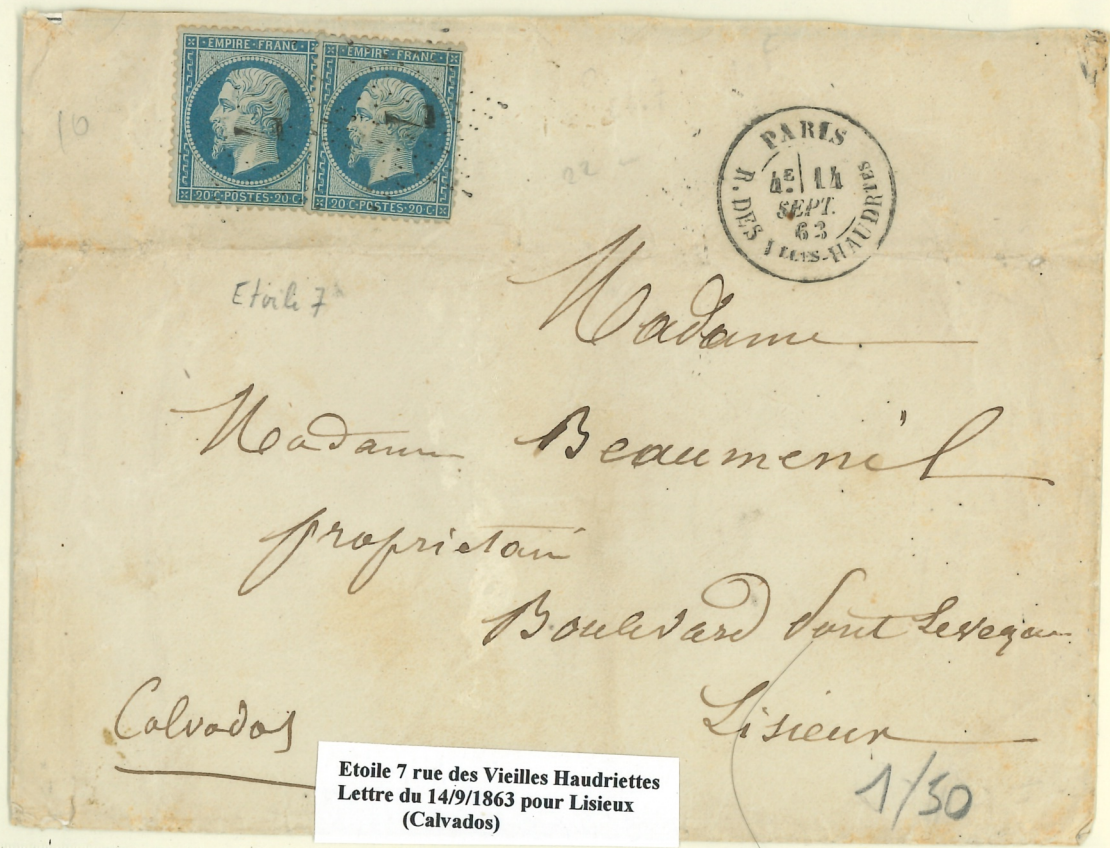 EMPIRE FRANC
20 C POSTES 20 C
7
EMPIRE FRANC
20 C POSTES 20 C
7
PARIS
4E 14
SEPT.
63
R. DES VLLES-HAUDRTES
10
22
Etoile 7
Madame
Madame Beaumenil
propriétaire
Boulevard Pont Leveque
Lisieux
Calvados
1/30
Etoile 7 rue des Vieilles Haudriettes
Lettre du 14/9/1863 pour Lisieux
(Calvados)